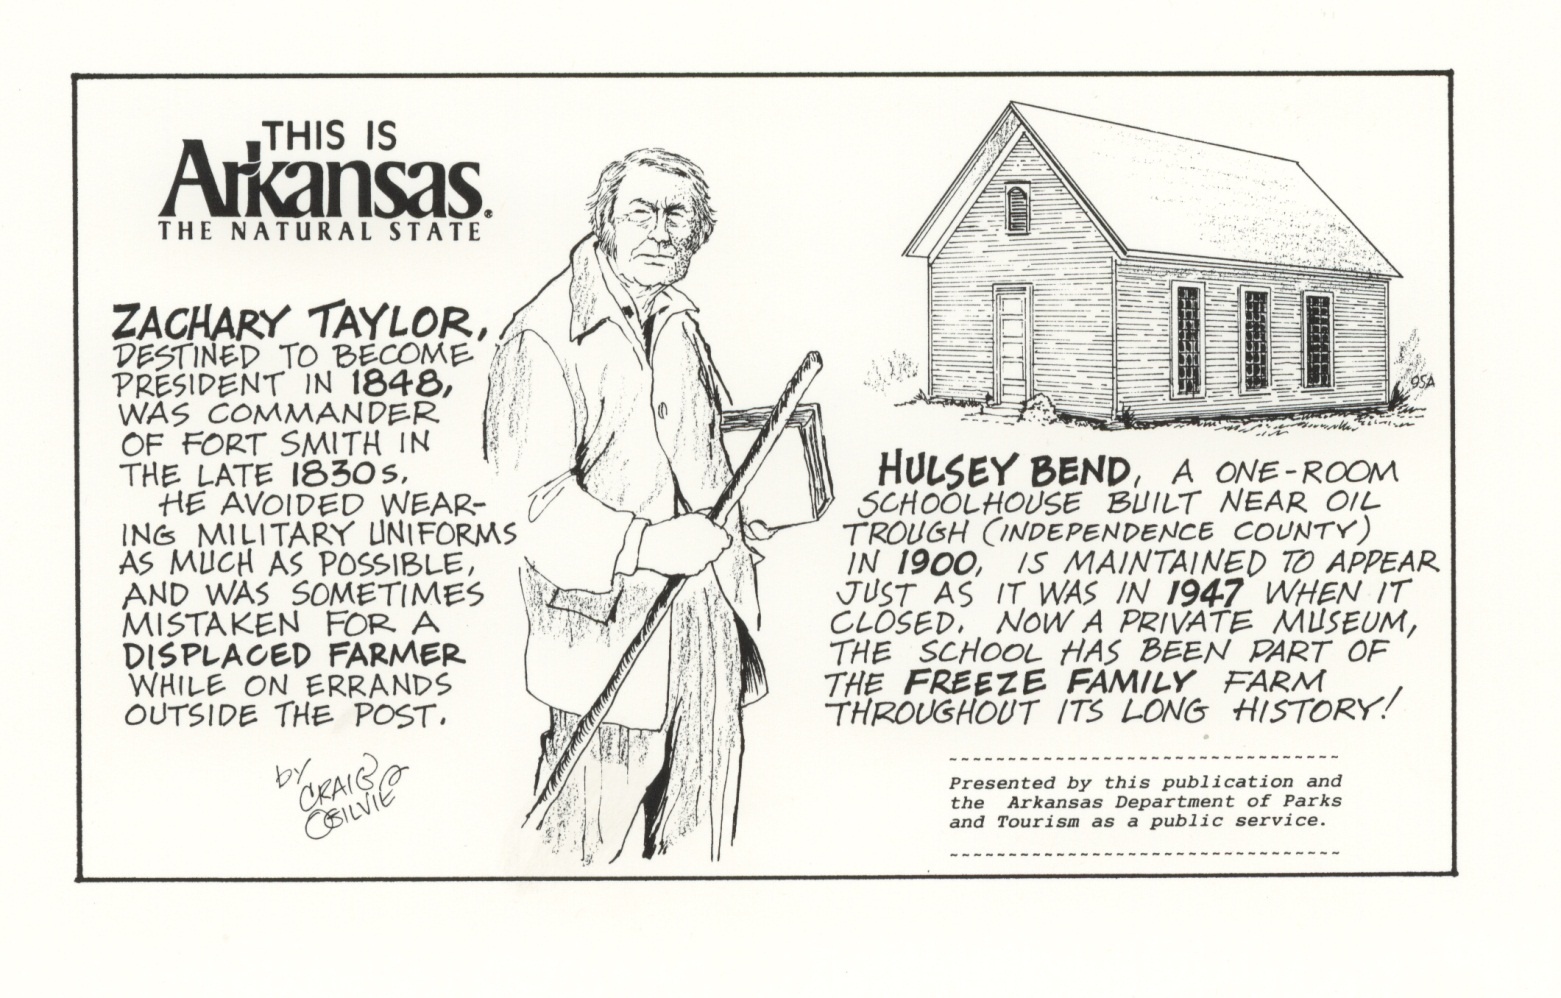 THIS IS
Arkansas®
THE NATURAL STATE
ZACHARY TAYLOR,
DESTINED TO BECOME
PRESIDENT IN 1848,
WAS COMMANDER
OF FORT SMITH IN
THE LATE 1830s.
HE AVOIDED WEAR-
ING MILITARY UNIFORMS
AS MUCH AS POSSIBLE,
AND WAS SOMETIMES
MISTAKEN FOR A
DISPLACED FARMER
WHILE ON ERRANDS
OUTSIDE THE POST.
by
CRAIG
OGILVIE
HULSEY BEND, A ONE-ROOM
SCHOOLHOUSE BUILT NEAR OIL
TROUGH (INDEPENDENCE COUNTY)
IN 1900, IS MAINTAINED TO APPEAR
JUST AS IT WAS IN 1947 WHEN IT
CLOSED. NOW A PRIVATE MUSEUM,
THE SCHOOL HAS BEEN PART OF
THE FREEZE FAMILY FARM
THROUGHOUT ITS LONG HISTORY!
Presented by this publication and
the Arkansas Department of Parks
and Tourism as a public service.